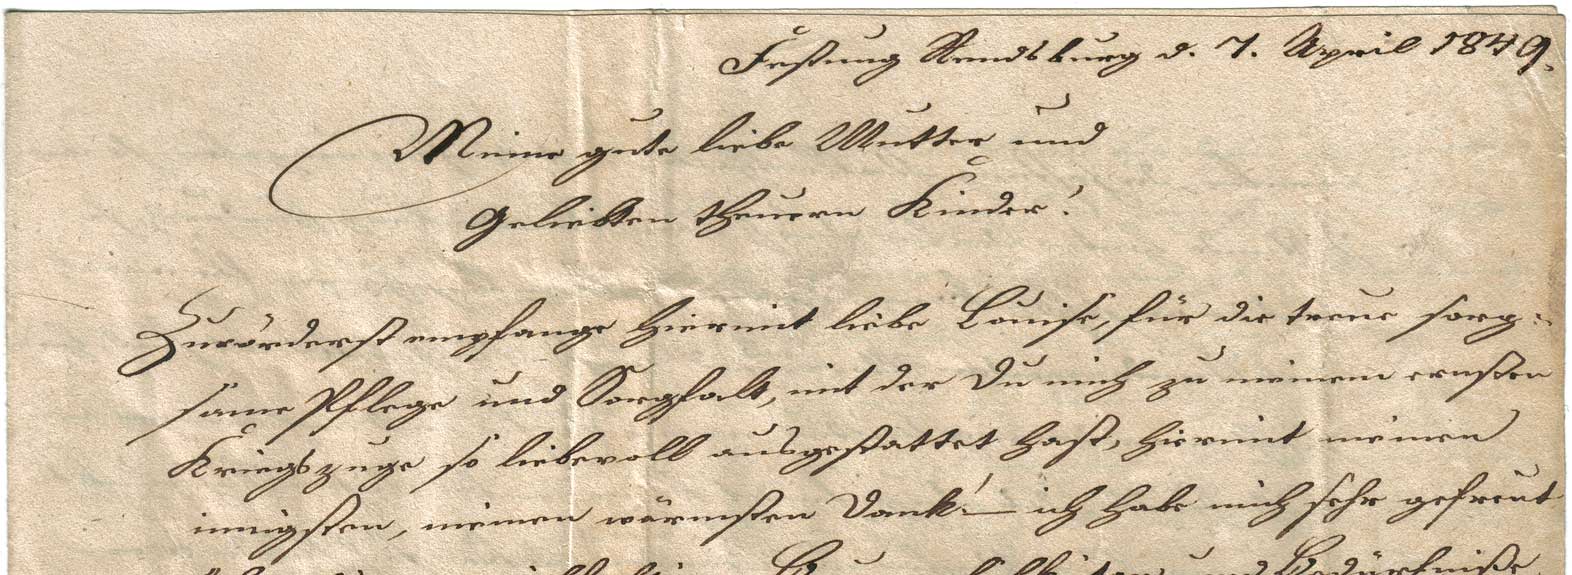 Festung Rendsburg d. 7. April 1849.
Meine gute liebe Mutter und
Geliebten theuern Kinder!
Zuvörderst empfange hiermit liebe Louise, für die treue sorg=
same Pflege und Sorgfalt, mit der Du mich zu meinem ernsten
Kriegszuge so liebevoll ausgestattet hast, hiermit meinen
innigsten, meinen wärmsten Dank! — ich habe mich sehr gefreut
und Bedürfniße